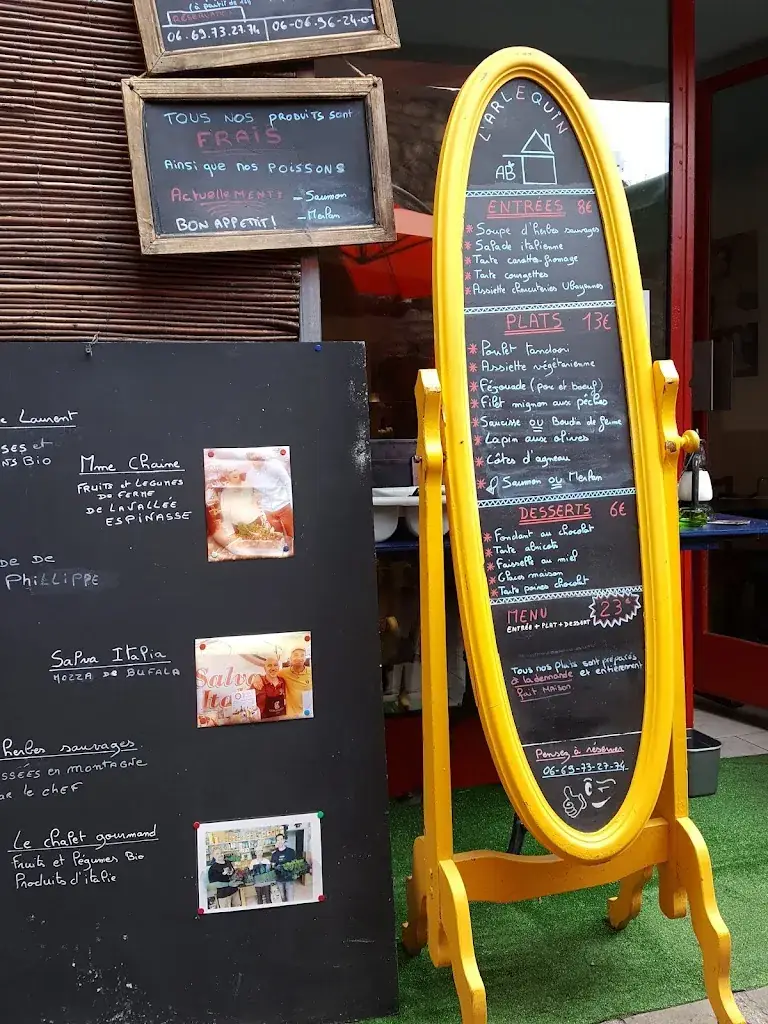 (à partir de
RÉSERVATION
06.69.73.27.74 06-06-96-24-01
TOUS NOS PRODUITS SONT
FRAIS
Ainsi que nos POISSONS
ActuelleMENT: - Saumon
- Merlan
BON APPETIT!
L'ARLEQUIN
AB
ENTRÉES 8€
* Soupe d'herbes sauvages
* Salade italienne
* Tarte carotte-fromage
* Tarte courgettes
* Assiette charcuteries Ubayennes
PLATS 13€
* Poulet tandoori
* Assiette végétarienne
* Fégouade (porc et boeuf)
* Filet mignon aux pêches
* Saucisse OU Boudin de
* Lapin aux olives
* Côtes d'agneau
* Saumon ou Merlan
DESSERTS 6€
* Fondant au chocolat
* Tarte abricots
* Faisselle au miel
* Glaces maison
* Tarte poires chocolat
MENU 23€
ENTRÉE + PLAT + DESSERT
Tous nos plats sont préparés
à la demande et entièrement
fait Maison
Pensez à réserver
06-69-73-27-74
Laurent
et
Bio
Mme Chaine
FRUITS et LEGUMES
DE FERME
DE LAVALLÉE
ESPINASSE
DE DE
PHILLIPPE
Salva Italia
MOZZA DE BUFALA
Salva
Ita
herbes sauvages
EN MONTAGNE
le CHEF
Le chalet gourmand
Fruits et légumes Bio
Produits d'italie